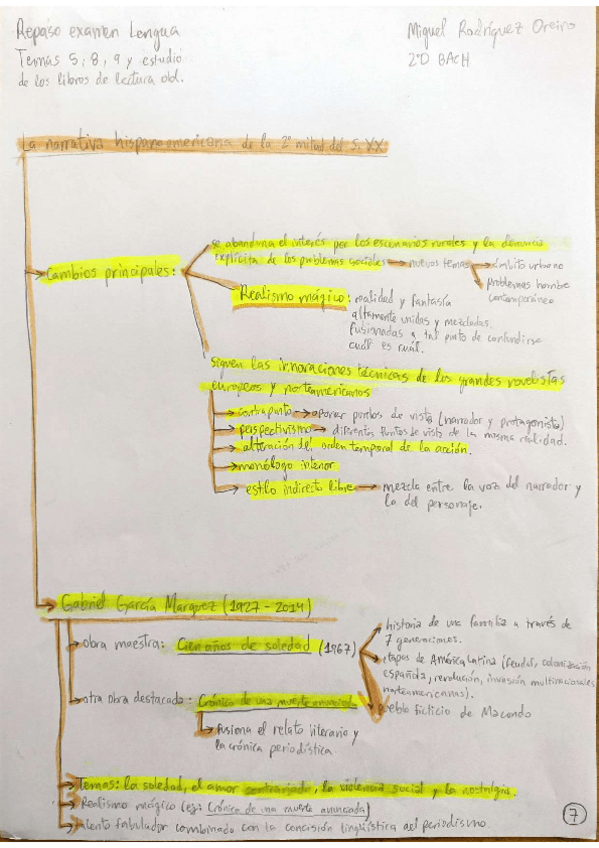 Repaso examen Lengua
Miguel Rodríguez Oreiro
Temas 5, 8, 9 y estudio
2ºD BACH
de los libros de lectura obl.
La narrativa hispanoamericana de la 2ª mitad del s. XX
Cambios principales:
se abandona el interés por los escenarios rurales y la denuncia
explícita de los problemas sociales → nuevos temas → ámbito urbano
problemas hombre
contemporáneo
Realismo mágico: realidad y fantasía
altamente unidas y mezcladas.
fusionadas a tal punto de confundirse
cuál es cuál.
siguen las innovaciones técnicas de los grandes novelistas
europeos y norteamericanos
→ contrapunto → oponer puntos de vista (narrador y protagonista)
→ perspectivismo → diferentes puntos de vista de la misma realidad.
→ alteración del orden temporal de la acción.
→ monólogo interior
→ estilo indirecto libre → mezcla entre la voz del narrador y
la del personaje.
Gabriel García Marquez (1927 - 2014)
→ obra maestra: Cien años de soledad (1967)
historia de una familia a través de
7 generaciones.
etapas de América Latina (feudal, colonización
española, revolución, invasión multinacionales
norteamericanas).
pueblo ficticio de Macondo
→ otra obra destacada: Crónica de una muerte anunciada
→ fusiona el relato literario y
la crónica periodística
→ Temas: la soledad, el amor contrariado, la violencia social y la nostalgia.
→ Realismo mágico (ej: Crónica de una muerte anunciada)
→ talento fabulador combinado con la concisión lingüística del periodismo.
7